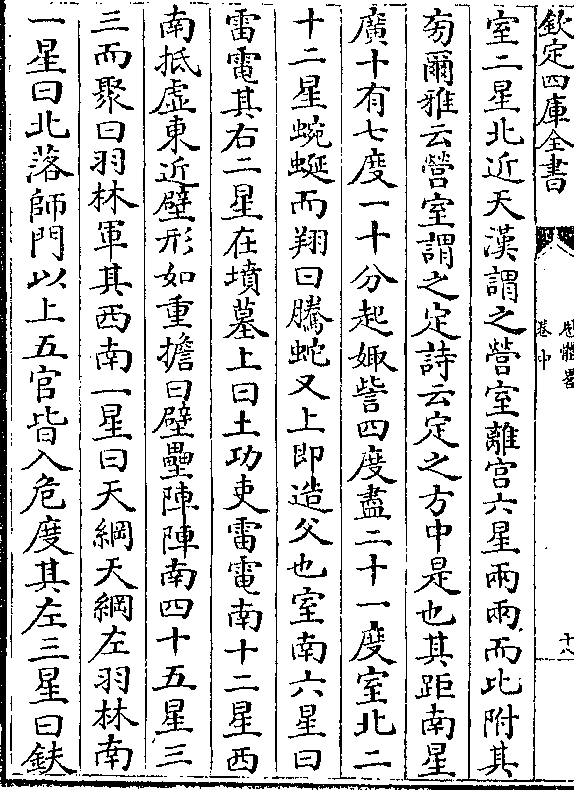 欽定四庫全書
卷中
十八
室二星北近天漢謂之營室離宫六星兩兩而比附其
㫄爾雅云營室謂之定詩云定之方中是也其距南星
廣十有七度一十分起娵訾四度盡二十一度室北二
十二星蜿蜒而翔曰騰蛇又上即造父也室南六星曰
雷電其右二星在墳墓上曰土功吏雷電南十二星西
南抵虚東近壁形如重擔曰壁壘陣陣南四十五星三
三而聚曰羽林軍其西南一星曰天綱天綱左羽林南
一星曰北落師門以上五官皆入危度其左三星曰鈇